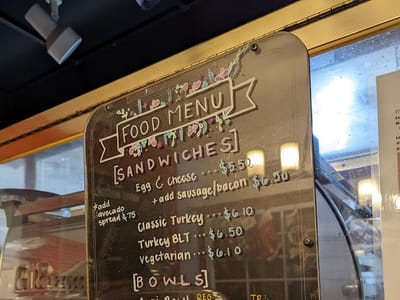 FOOD MENU
[SANDWICHES]
Egg & Cheese ... $5.50
+ add sausage/bacon $6.50
*add
avocado
spread $.75
Classic Turkey ... $6.10
Turkey BLT ... $6.50
Vegetarian ... $6.10
[BOWLS]